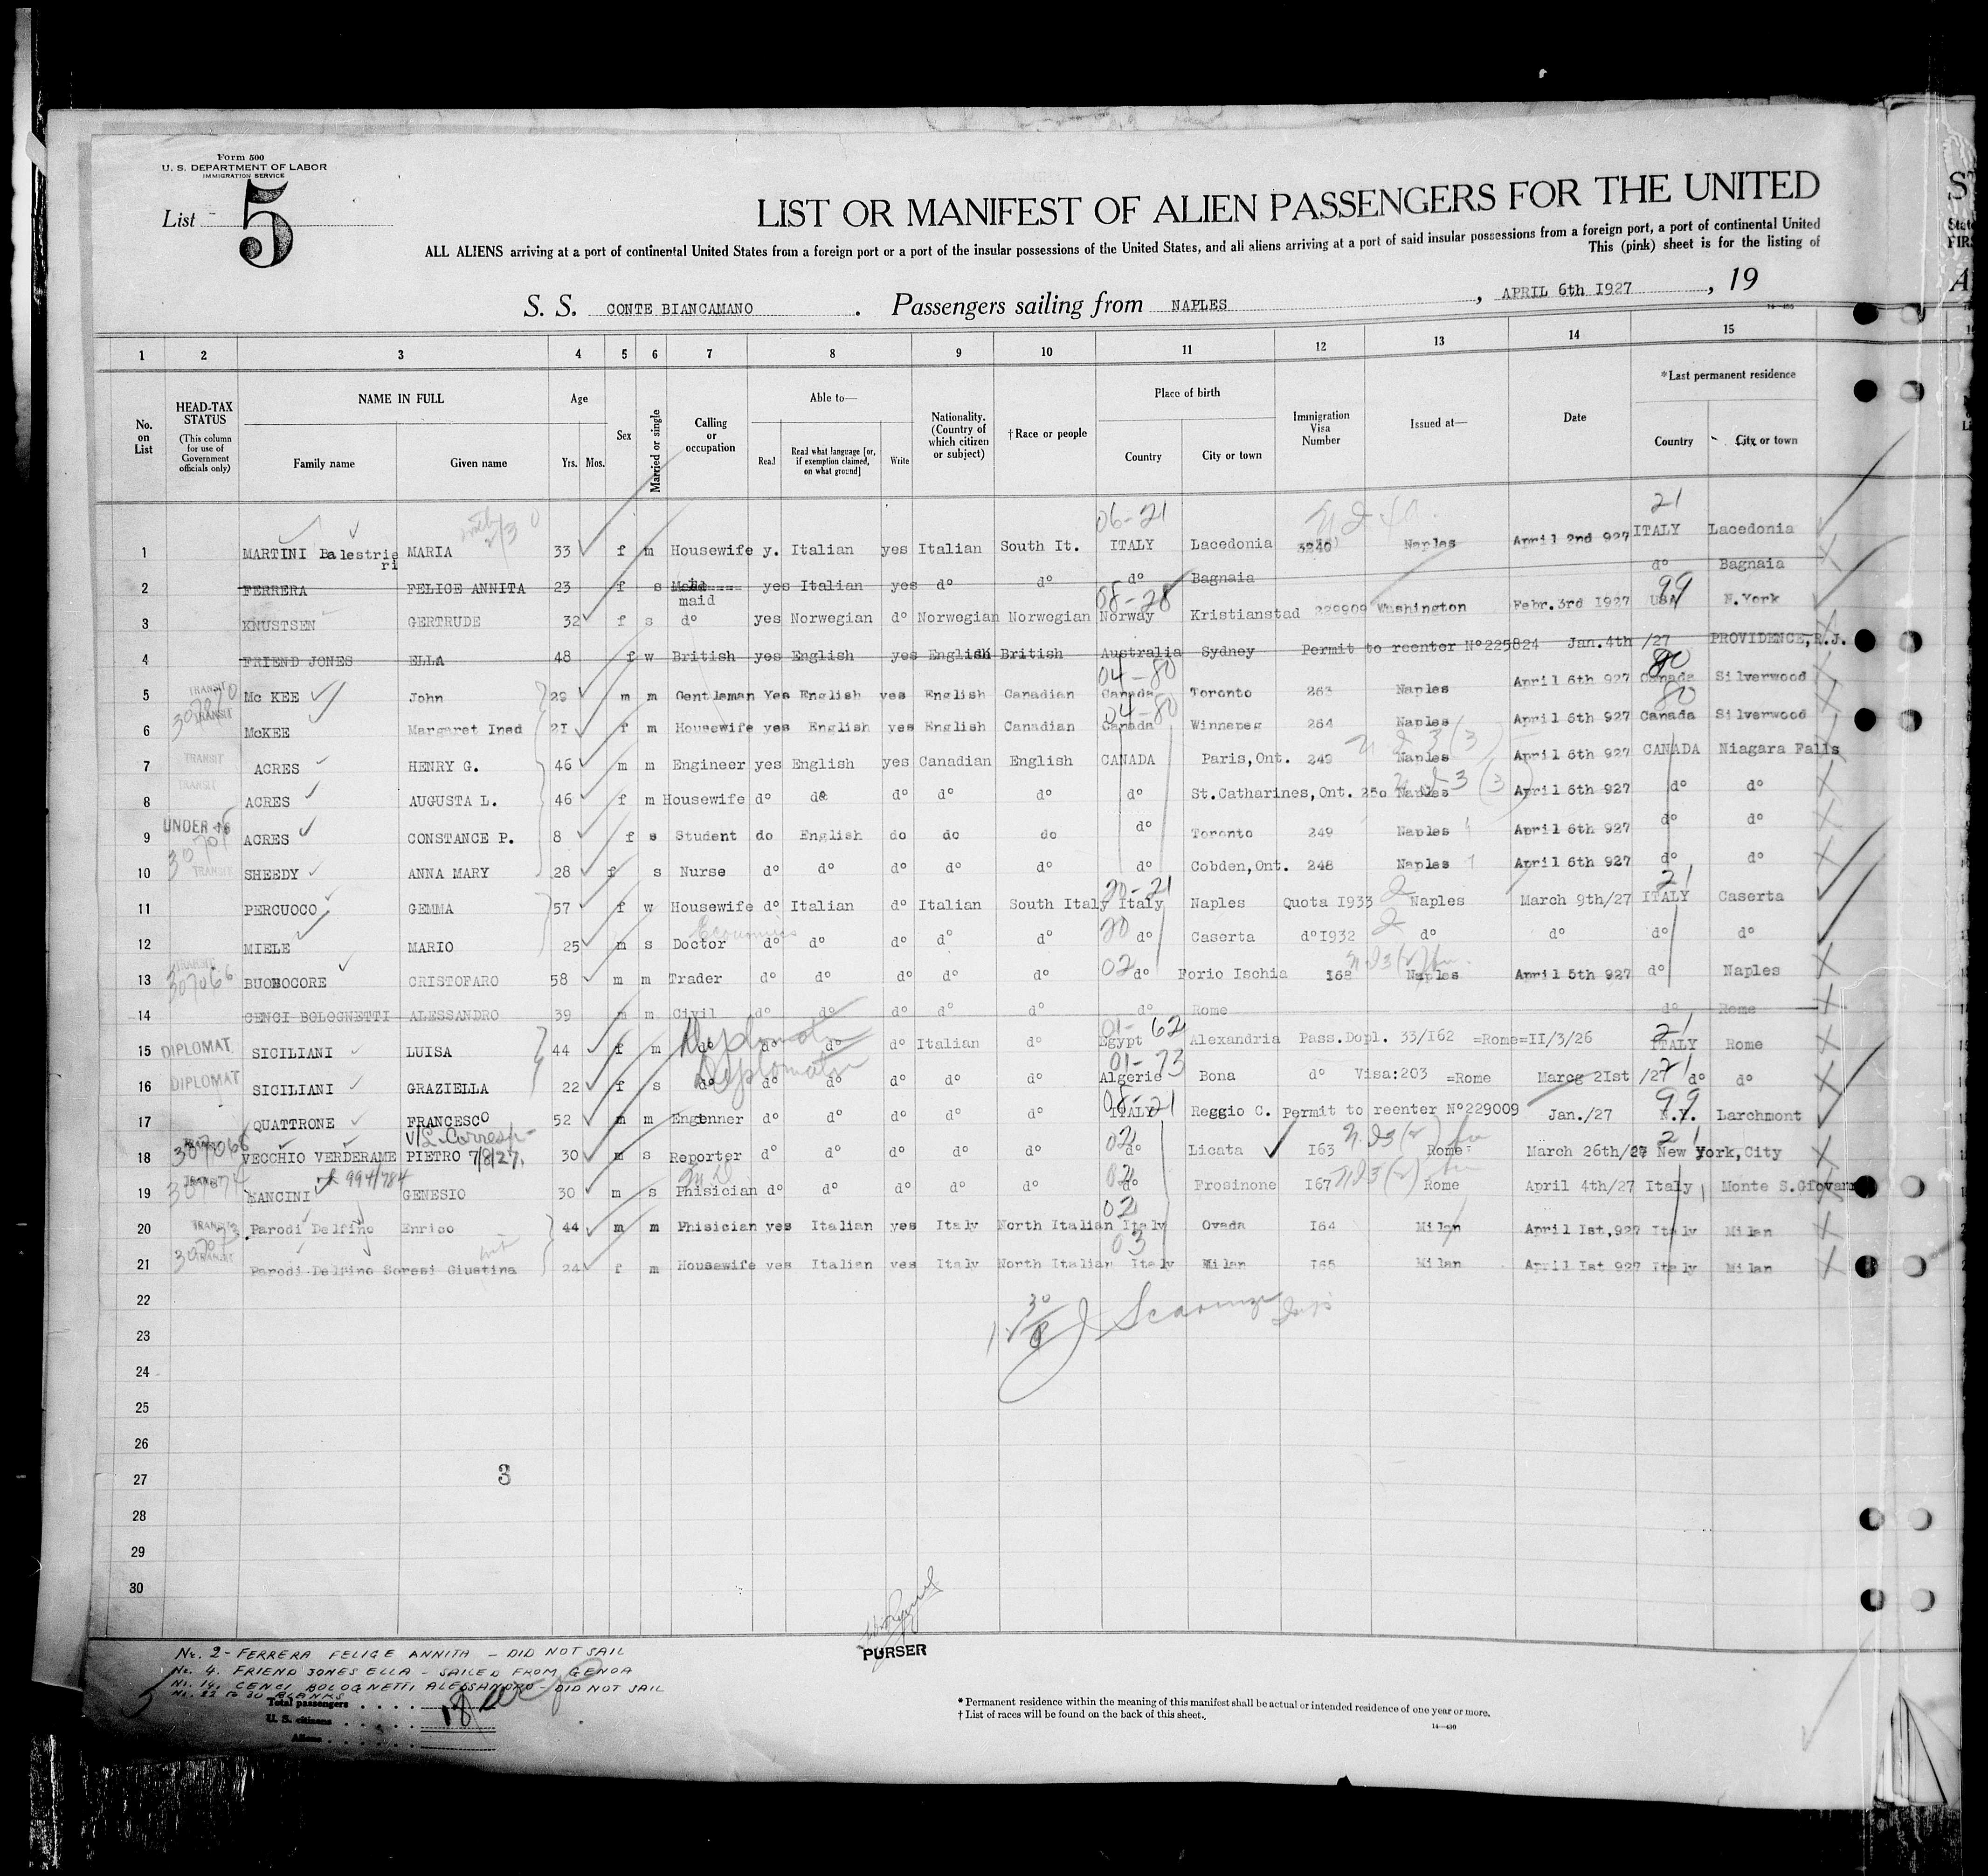 Form 500
U. S. DEPARTMENT OF LABOR
IMMIGRATION SERVICE
List 5
LIST OR MANIFEST OF ALIEN PASSENGERS FOR THE UNITED
ALL ALIENS arriving at a port of continental United States from a foreign port or a port of the insular possessions of the United States, and all aliens arriving at a port of said insular possessions from a foreign port, a port of continental United
This (pink) sheet is for the listing of
S. S. CONTE BIANCAMANO. Passengers sailing from NAPLES, APRIL 6th I927, 19
1 2 3 4 5 6 7 8 9 10 11 12 13 14 15
No. on List
HEAD-TAX STATUS (This column for use of Government officials only)
NAME IN FULL
Family name Given name
Age
Yrs. Mos.
Sex
Married or single
Calling or occupation
Able to—
Read
Read what language [or, if exemption claimed, on what ground]
Write
Nationality. (Country of which citizen or subject)
†Race or people
Place of birth
Country City or town
Immigration Visa Number
Issued at—
Date
*Last permanent residence
Country City or town
06-21 21
1 MARTINI Balestrie ri MARIA 33 f m Housewife y. Italian yes Italian South It. ITALY Lacedonia 3240 Naples April 2nd 927 ITALY Lacedonia
2 FERRERA FELICE ANNITA 23 f s maid yes Italian yes d° d° d° Bagnaia d° Bagnaia
08-28 99
3 KNUSTSEN GERTRUDE 32 f s d° yes Norwegian d° Norwegian Norwegian Norway Kristianstad 229909 Washington Febr.3rd I927 USA N.York
4 FRIEND JONES ELLA 48 f w British yes English yes English British Australia Sydney Permit to reenter N°225824 Jan.4th /27 PROVIDENCE,R.J.
04-80 80
5 TRANSIT Mc KEE John 29 m m Gentleman Yes English yes English Canadian Canada Toronto 263 Naples April 6th 927 Canada Silverwood
04-80 80
6 TRANSIT McKEE Margaret Ined 2I f m Housewife yes English yes English Canadian Canada Winnepeg 264 Naples April 6th 927 Canada Silverwood
7 TRANSIT ACRES HENRY G. 46 m m Engineer yes English yes Canadian English CANADA Paris,Ont. 249 Naples April 6th 927 CANADA Niagara Falls
8 TRANSIT ACRES AUGUSTA L. 46 f m Housewife d° d° d° d° d° d° St.Catharines,Ont. 25o Naples April 6th 927 d° d°
9 UNDER 16 ACRES CONSTANCE P. 8 f s Student do English do do do d° Toronto 249 Naples April 6th 927 d° d°
10 TRANSIT SHEEDY ANNA MARY 28 f s Nurse d° d° d° d° d° d° Cobden,Ont. 248 Naples April 6th 927 d° d°
20-21 21
11 PERCUOCO GEMMA 57 f w Housewife d° Italian d° Italian South Italy Italy Naples Quota I933 Naples March 9th/27 ITALY Caserta
12 MIELE MARIO 25 m s Doctor Economics d° d° d° d° d° 20 d° Caserta d°I932 d° d° d° d°
13 TRANSIT 307066 BUONOCORE CRISTOFARO 58 m m Trader d° d° d° d° d° 02 d° Forio Ischia I68 Naples April 5th 927 d° Naples
14 CENCI BOLOGNETTI ALESSANDRO 39 m m Civil d° d° d° d° d° d° Rome d° Rome
01-62 21
15 DIPLOMAT SICILIANI LUISA 44 f m d° Diplomat d° d° d° Italian d° Egypt Alexandria Pass.Dopl. 33/I62 =Rome=II/3/26 ITALY Rome
01-73 21
16 DIPLOMAT SICILIANI GRAZIELLA 22 f s d° Diplomat d° d° d° d° d° Algerie Bona d° Visa:203 =Rome Marcg 2Ist /27 d° d°
08-21 99
17 QUATTRONE FRANCESCO 52 m m Engenner d° d° d° d° d° ITALY Reggio C. Permit to reenter N°229009 Jan./27 N.Y. Larchmont
18 307068 VECCHIO VERDERAME PIETRO 7/8/27. 30 m s Reporter d° d° d° d° d° 02 d° Licata I63 Rome March 26th/27 New York,City
19 307074 MANCINI 994/784 GENESIO 30 m s Phisician d° d° d° d° d° 02 d° Frosinone I67 Rome April 4th/27 Italy Monte S.Giovann
02
20 TRANSIT Parodi Delfino Enrico 44 m m Phisician yes Italian yes Italy North Italian Italy Ovada I64 Milan April Ist,927 Italy Milan
03
21 TRANSIT 307073 Parodi Delfino Soresi Giustina 24 f m Housewife yes Italian yes Italy North Italian Italy Milan I65 Milan April Ist 927 Italy Milan
22
23
24
25
26
27
3
28
29
30
PURSER
Nr. 2 - FERRERA FELICE ANNITA - DID NOT SAIL
Nr. 4. FRIEND JONES ELLA - SAILED FROM GENOA
Nr. 14. CENCI BOLOGNETTI ALESSANDRO - DID NOT SAIL
Nr. 22 to 30 BLANKS
Total passengers 18
U. S. citizens
Aliens
* Permanent residence within the meaning of this manifest shall be actual or intended residence of one year or more.
† List of races will be found on the back of this sheet.
14—430